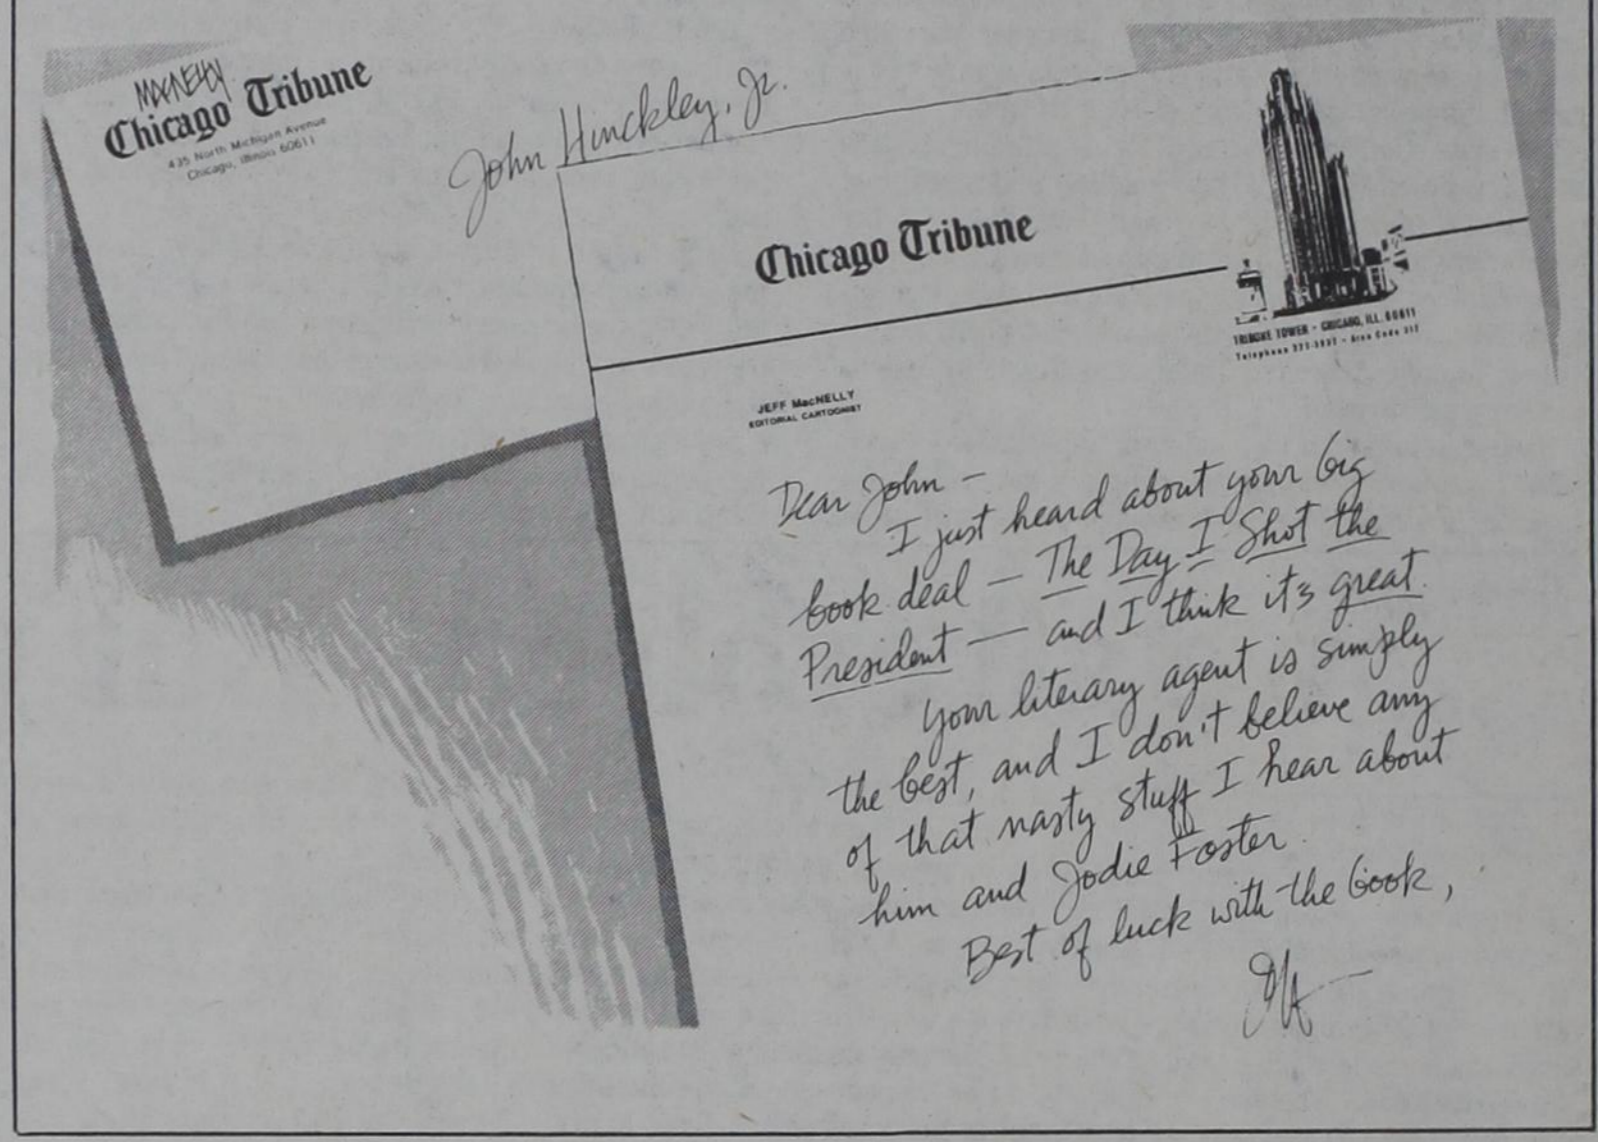 MacNELLY
Chicago Tribune
435 North Michigan Avenue
Chicago, Illinois 60611
John Hinckley, Jr.
Chicago Tribune
TRIBUNE TOWER - CHICAGO, ILL. 60611
Telephone - Area Code 312
JEFF MacNELLY
EDITORIAL CARTOONIST
Dear John -
I just heard about your big
book deal — The Day I Shot the
President — and I think it's great.
Your literary agent is simply
the best, and I don't believe any
of that nasty stuff I hear about
him and Jodie Foster.
Best of luck with the book,